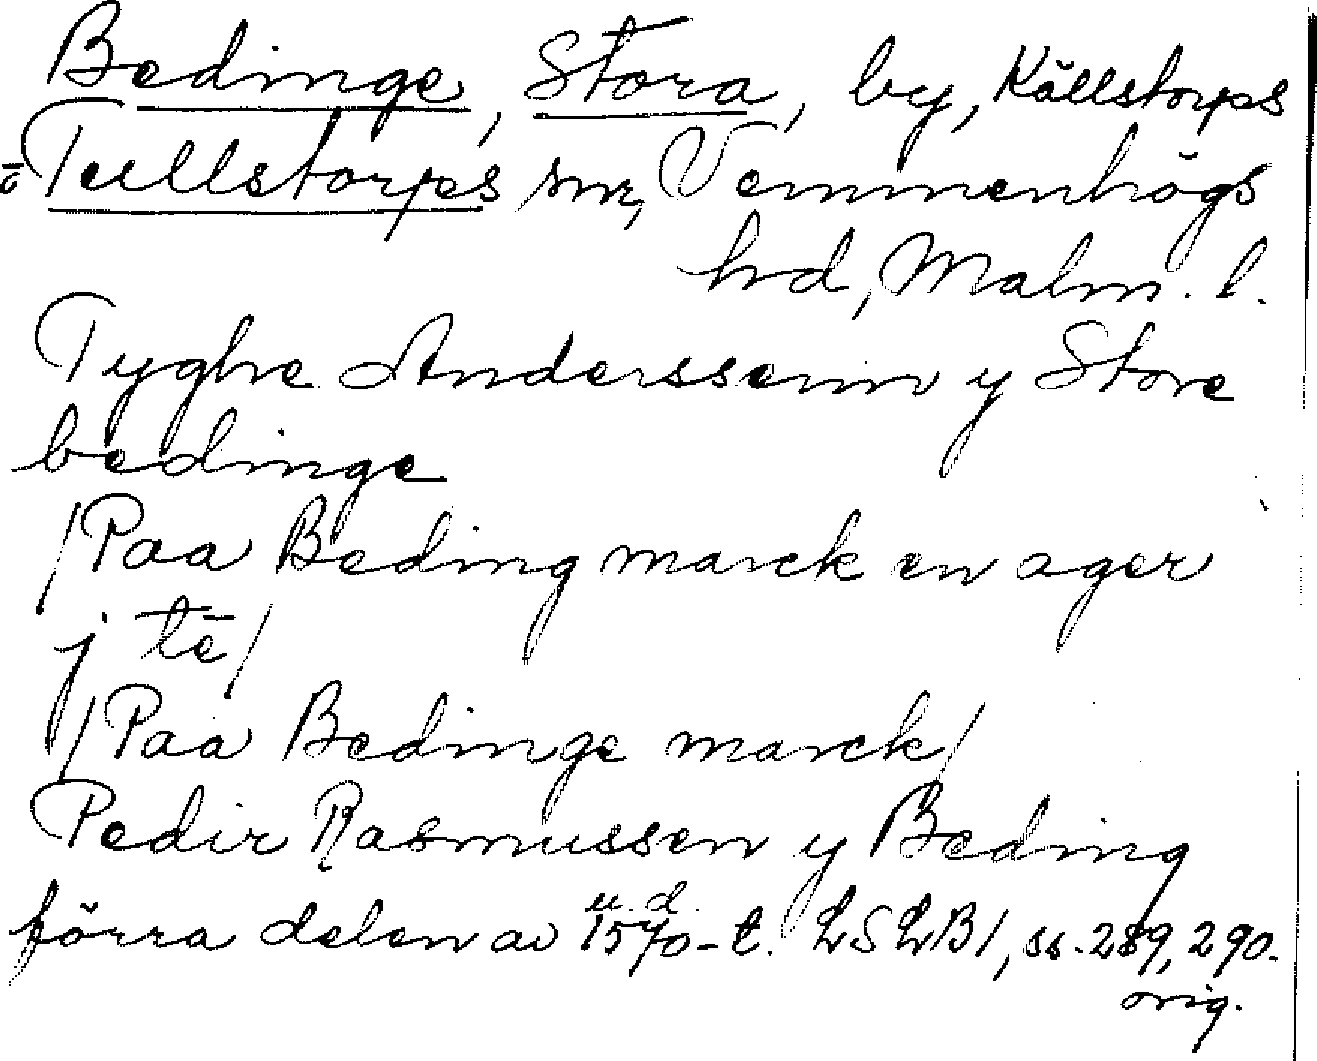 Bedinge, Stora, by, Källstorps
ö Tullstorps snr, Vemmenhögs
hd, Malm. l.
Tyghe Anderssenn y Store
bedinge
/Paa Beding marck en ager
j tē/
/Paa Bedinge marck/
Pedir Rasmussen y Beding
u. d.
förra delen av 1570-t. LSLB1, ss. 289, 290.
orig.